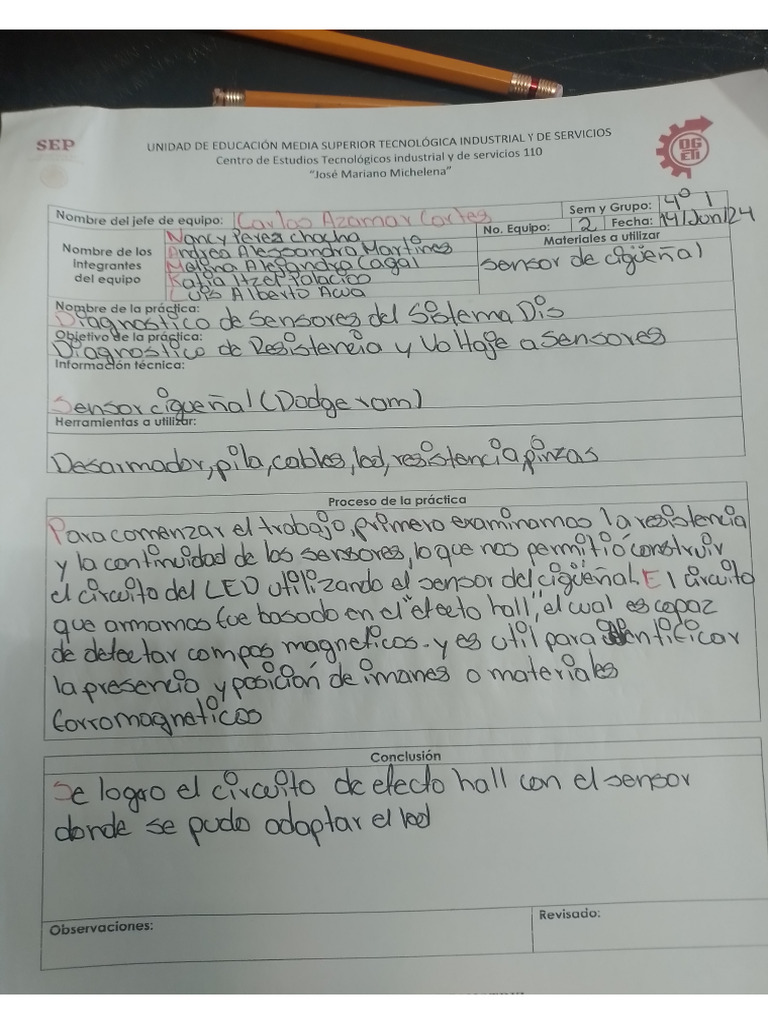 SEP
UNIDAD DE EDUCACIÓN MEDIA SUPERIOR TECNOLÓGICA INDUSTRIAL Y DE SERVICIOS
Centro de Estudios Tecnológicos industrial y de servicios 110
"José Mariano Michelena"
DGETi
Nombre del jefe de equipo: Carlos Azamar Cortes
Sem y Grupo: 4° I
No. Equipo: 2 Fecha: 19/Jun/24
Nombre de los integrantes del equipo
Nancy Perez Chacha
Andrea Alessandra Martines
Melina Alejandro Cagal
Katia Itzel Palacios
Luis Alberto Acua
Materiales a utilizar
sensor de cigüeñal
Nombre de la práctica:
Diagnostico de Sensores del Sistema Dis
Objetivo de la práctica:
Diagnostico de Resistencia y Voltaje a sensores
Información técnica:
Sensor cigueñal (Dodge ram)
Herramientas a utilizar:
Desarmador, pila, cables, led, resistencia, pinzas
Proceso de la práctica
Para comenzar el trabajo, primero examinamos la resistencia
y la continuidad de los sensores, lo que nos permitió construir
el circuito del LED utilizando el sensor del cigüeñal. El circuito
que armamos fue basado en el "efecto hall", el cual es capaz
de detectar campos magneticos. y es util para identificar
la presencia y posición de imanes o materiales
forromagneticos
Conclusión
Se logro el circuito de efecto hall con el sensor
donde se pudo adaptar el led
Observaciones:
Revisado: